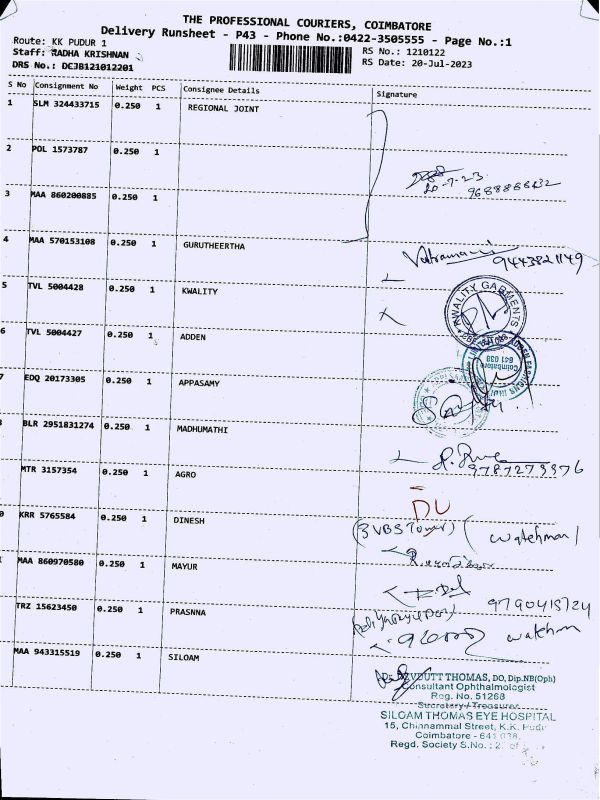 THE PROFESSIONAL COURIERS, COIMBATORE
Delivery Runsheet - P43 - Phone No.:0422-3505555 - Page No.:1
Route: KK PUDUR 1
RS No.: 1210122
Staff: RADHA KRISHNAN
RS Date: 20-Jul-2023
DRS No.: DCJB121012201
S No Consignment No Weight PCS Consignee Details Signature
1 SLM 324433715 0.250 1 REGIONAL JOINT
2 POL 1573787 0.250 1
20-7-23
3 MAA 860200885 0.250 1
4 MAA 570153108 0.250 1 GURUTHEERTHA
9443821149
5 TVL 5004428 0.250 1 KWALITY
KWALITY GARMENTS
6 TVL 5004427 0.250 1 ADDEN
Coimbatore
641 038
7 EDQ 20173305 0.250 1 APPASAMY
BLR 2951831274 0.250 1 MADHUMATHI
9787273376
MTR 3157354 0.250 1 AGRO
DU
KRR 5765584 0.250 1 DINESH
(3 VBS Tower) (watchman)
MAA 860970580 0.250 1 MAYUR
TRZ 15623450 0.250 1 PRASNNA
9790415724
watchman
MAA 943315519 0.250 1 SILOAM
THOMAS, DO, Dip.NB(Oph)
Consultant Ophthalmologist
Reg. No. 51268
Secretary / Treasurer
SILOAM THOMAS EYE HOSPITAL
15, Chinnammal Street, K.K. Pudur
Coimbatore - 641 038.
Regd. Society S.No.: 2 of